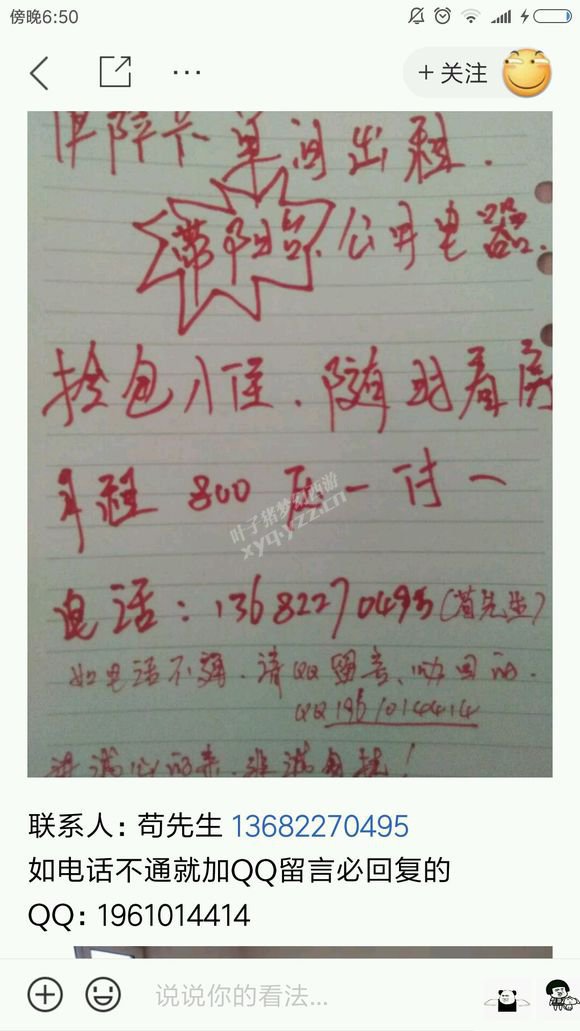 傍晚6:50
+ 关注
单间出租.
带阳台. 公用电器.
拎包入住. 随时看房
月租 800 压一付一
叶子猪梦幻西游
xyq.yzz.cn
电话：13682270495(苟先生)
如电话不通. 请QQ留言、必回的.
QQ 1961014414
非诚勿扰！
联系人：苟先生 13682270495
如电话不通就加QQ留言必回复的
QQ：1961014414
说说你的看法...